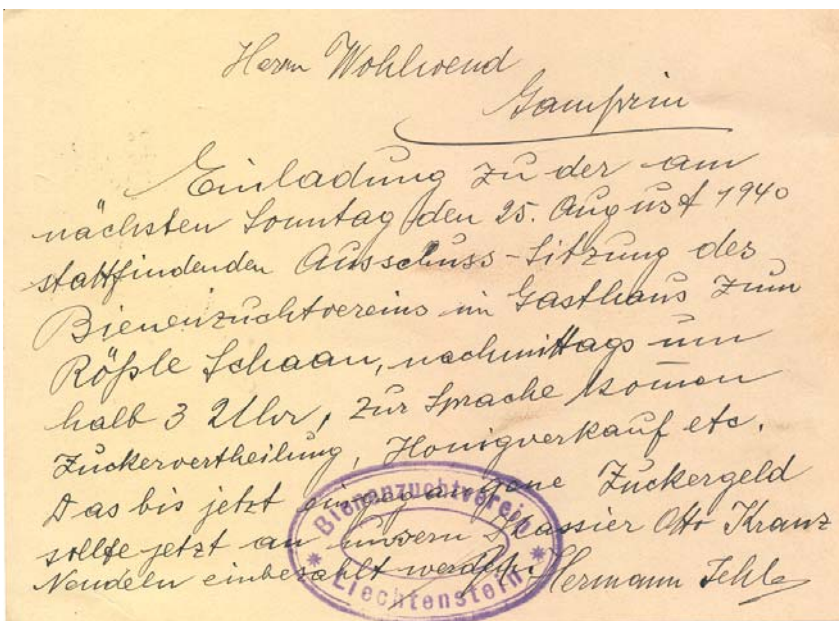 Herrn Wohlwend
Gamprin
Einladung zu der am
nächsten Sonntag den 25. August 1940
stattfindenden Ausschuss-Sitzung des
Bienenzuchtvereins im Gasthaus zum
Rößle Schaan, nachmittags um
halb 3 Uhr, zur Sprache kom̅en
Zuckervertheilung, Honigverkauf etc.
Das bis jetzt eingegangene Zuckergeld
sollte jetzt an unsern Kassier Otto Kranz
Nendeln einbezahlt werden.
Hermann Jehle
Bienenzuchtverein
* Liechtenstein *